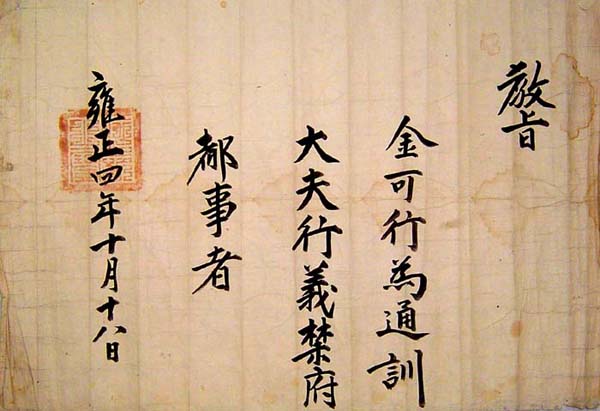 敎旨
金可行為通訓
大夫行義禁府
都事者
雍正四年十月十八日